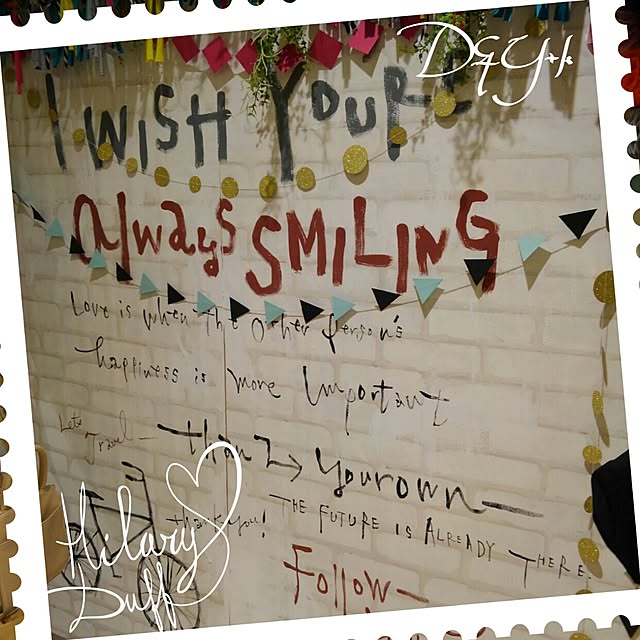 I WISH YOUR
Always SMILING
Love is when the Other Person's
happiness is more Important
Let's
Travel—
than → Yourown—
thank you!
THE FUTURE IS ALREADY THERE.
Follow—
Hilary
Duff